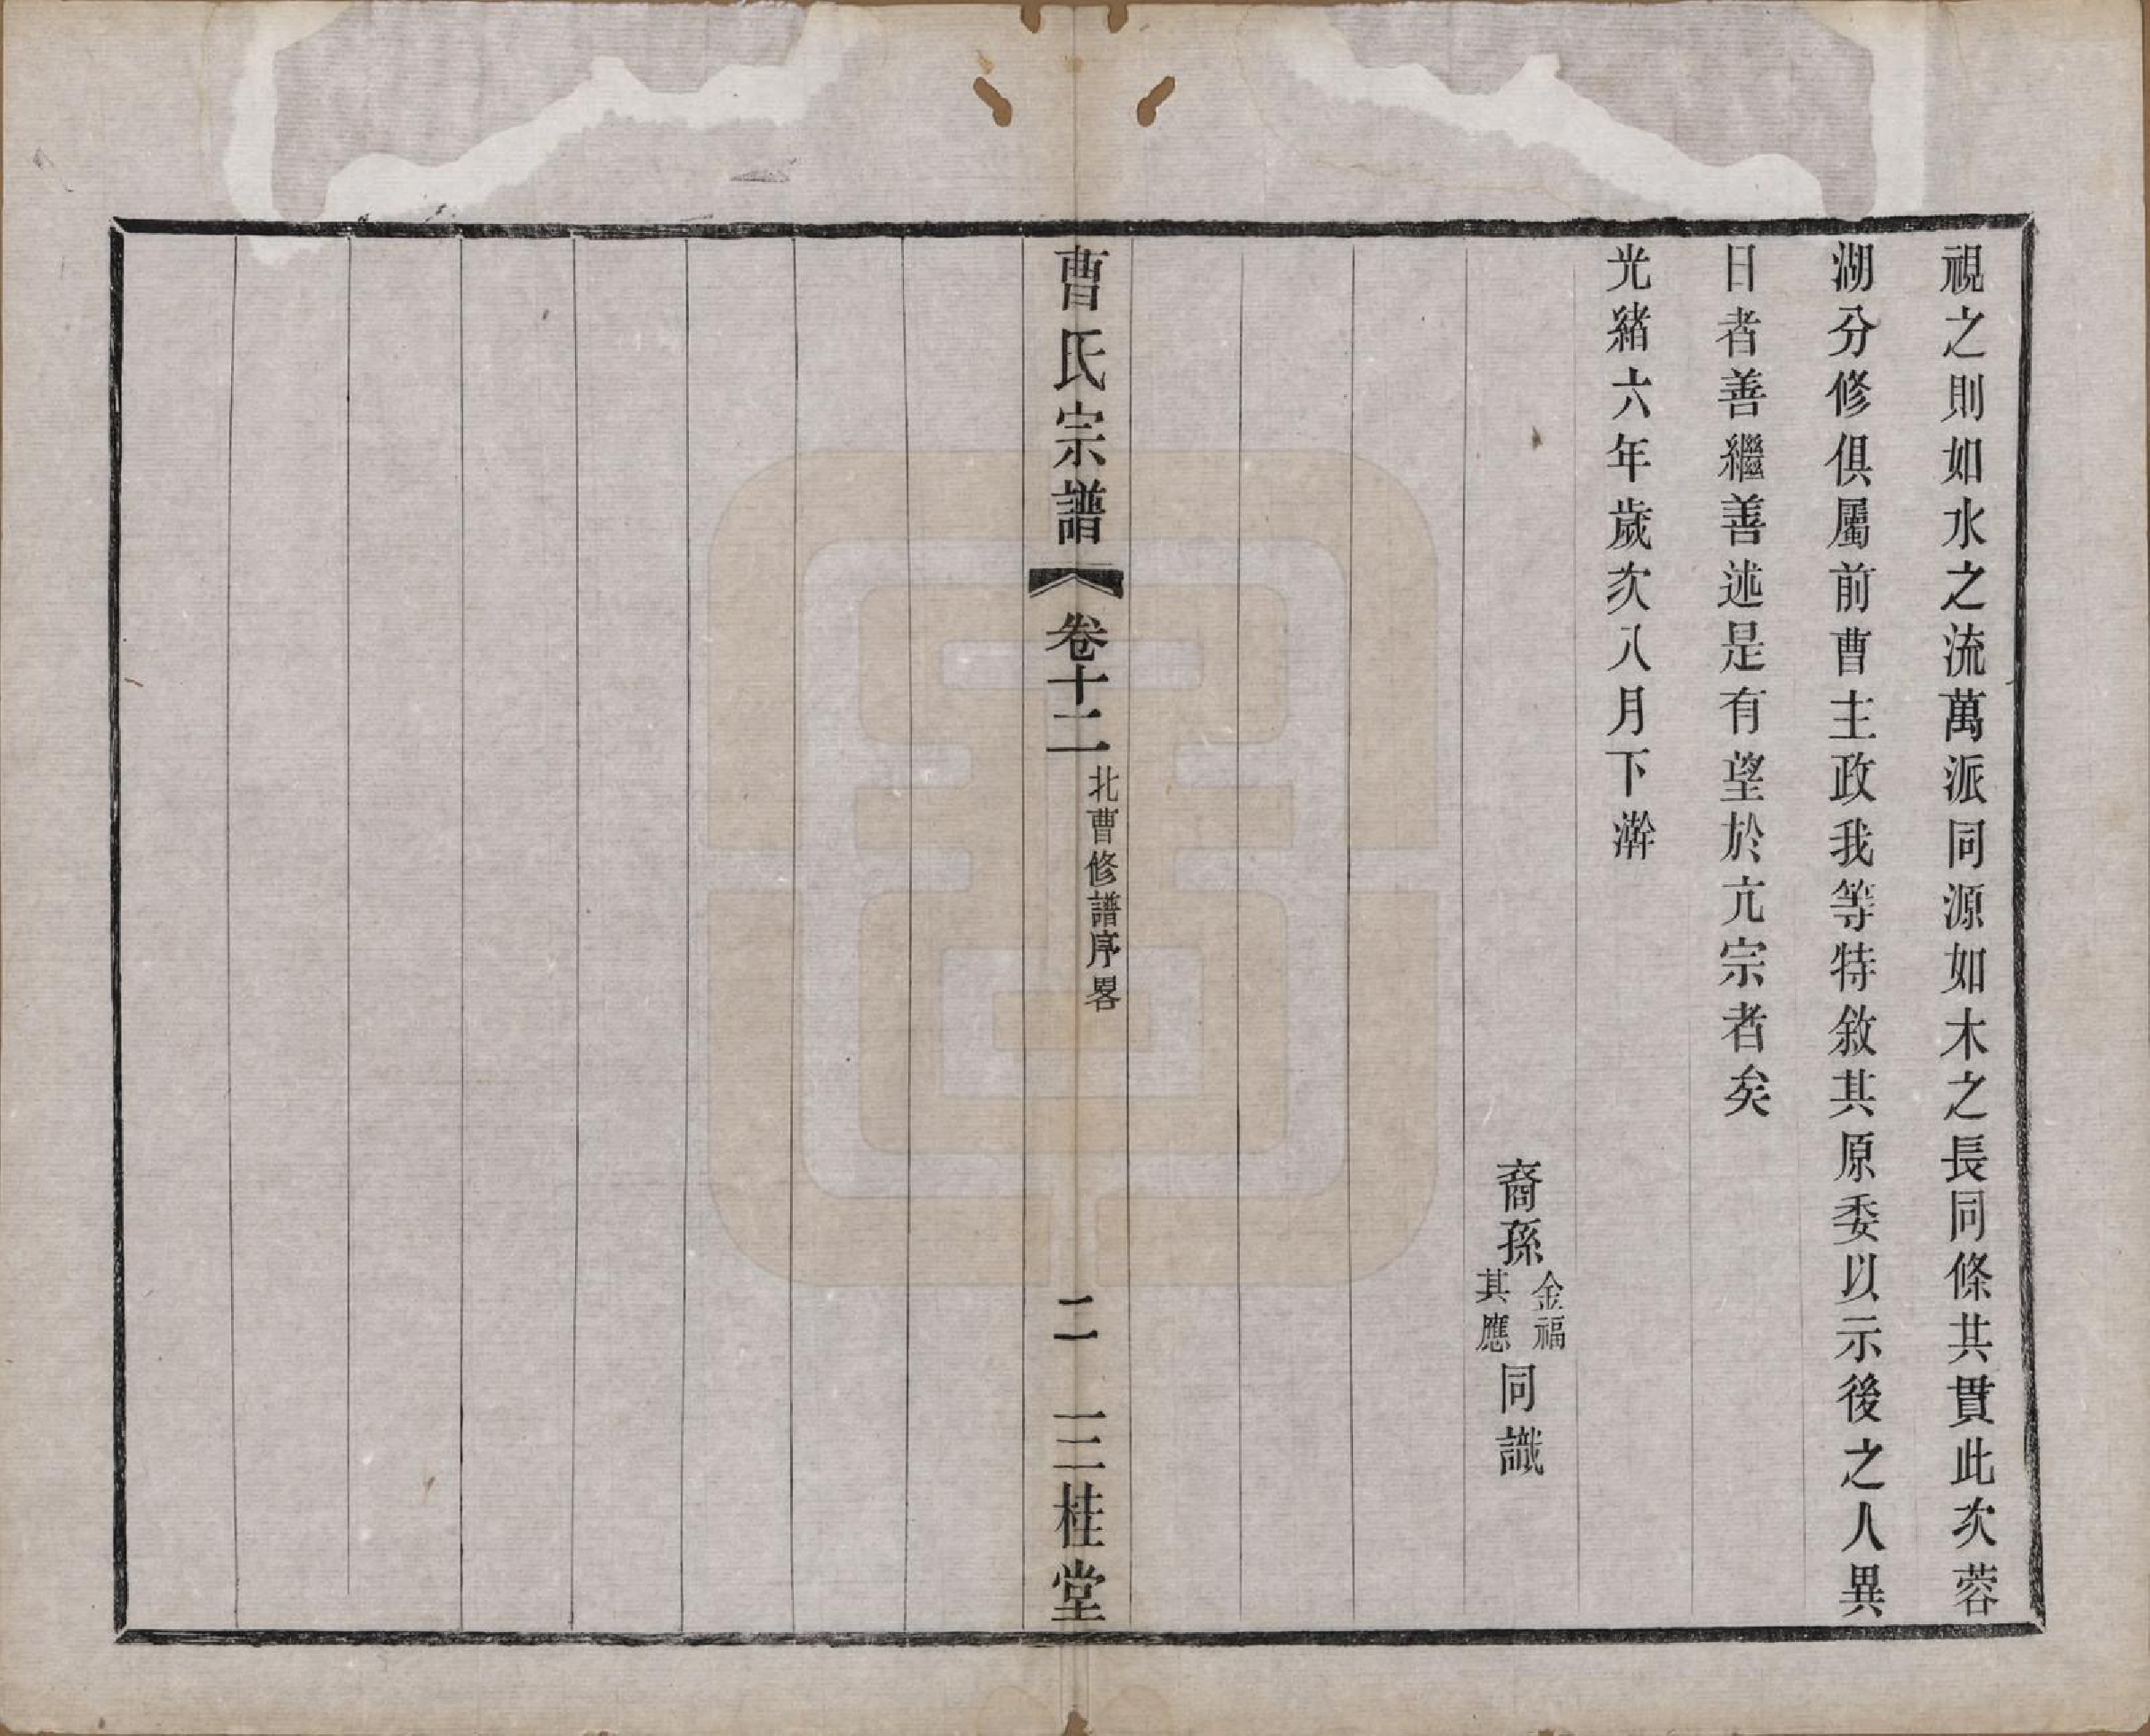 視之則如水之流萬派同源如木之長同條共貫此次蓉
湖分修俱屬前曹主政我等特敘其原委以示後之人異
日者善繼善述是有望於亢宗者矣
光緒六年歲次八月下澣
裔孫金福其應同識
曹氏宗譜 卷十二 北曹修譜序畧 二 三桂堂